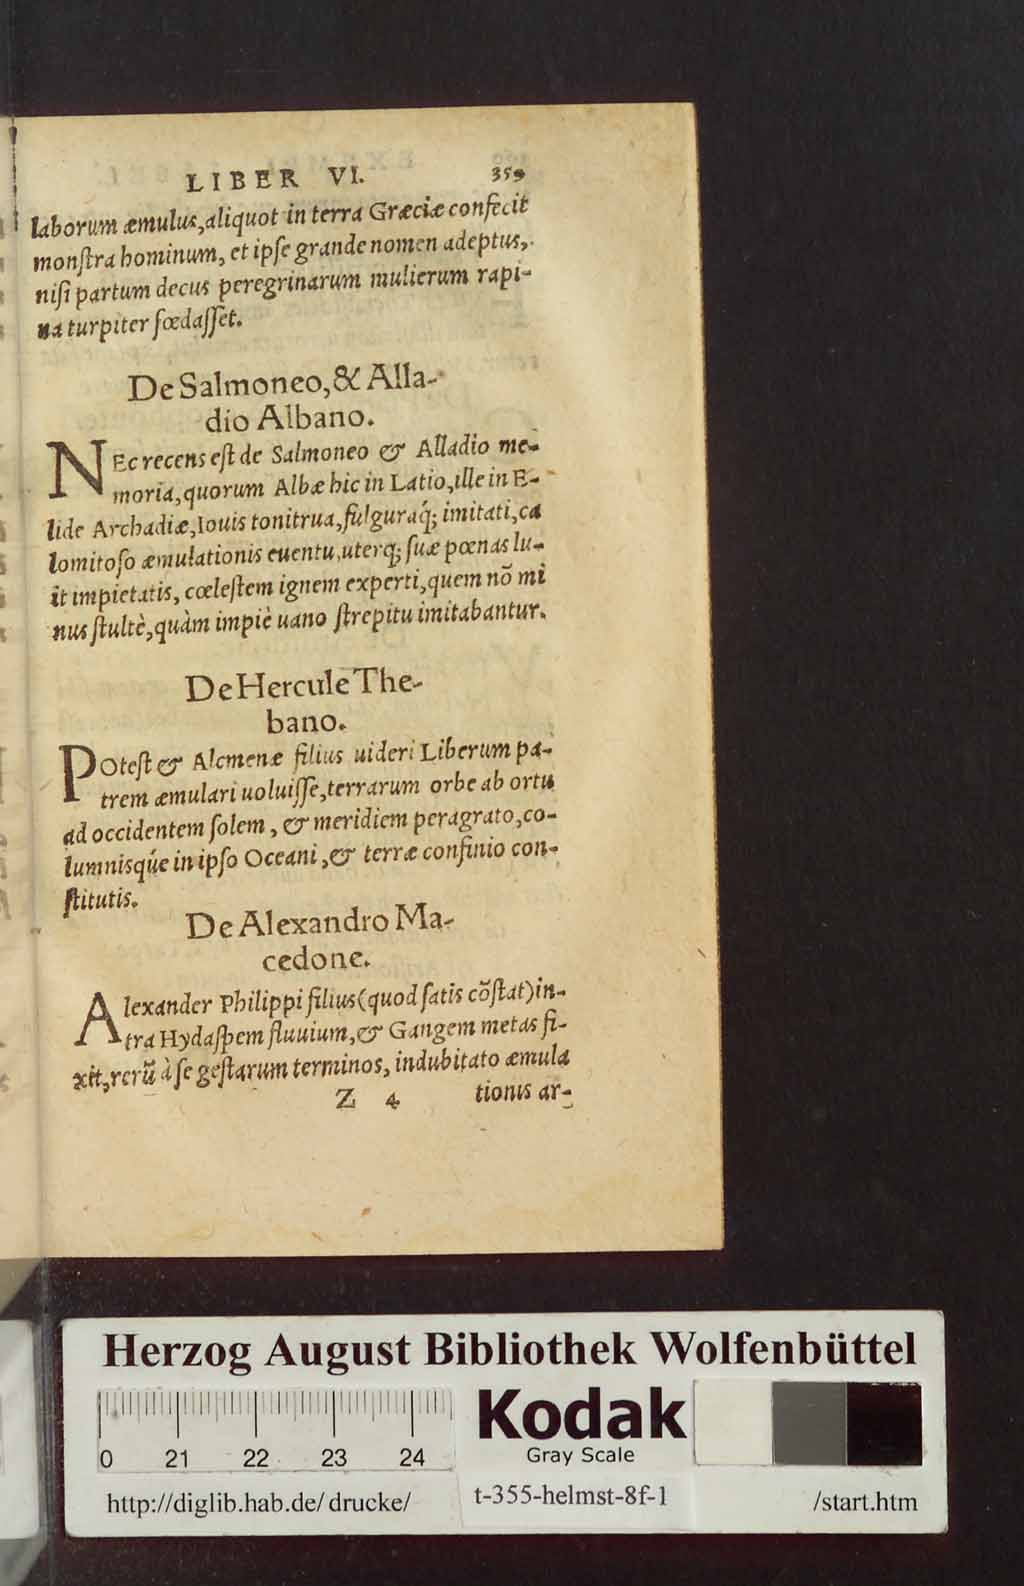 LIBER VI. 359
laborum æmulus, aliquot in terra Græciæ confecit
monſtra hominum, et ipſe grande nomen adeptus,
niſi partum decus peregrinarum mulierum rapi-
na turpiter fœdaſſet.
De Salmoneo, & Alla-
dio Albano.
NEc recens eſt de Salmoneo & Alladio me-
moria, quorum Albæ hic in Latio, ille in E-
lide Archadiæ, Iouis tonitrua, fulguraq́; imitati, ca
lomitoſo æmulationis euentu, uterq; ſuæ pœnas lu-
it impietatis, cœleſtem ignem experti, quem nõ mi
nus ſtultè, quàm impiè uano ſtrepitu imitabantur.
De Hercule The-
bano.
POteſt & Alcmenæ filius uideri Liberum pa-
trem æmulari uoluiſſe, terrarum orbe ab ortu
ad occidentem ſolem, & meridiem peragrato, co-
lumnisq́ue in ipſo Oceani, & terræ confinio con-
ſtitutis.
De Alexandro Ma-
cedone.
Alexander Philippi filius (quod ſatis cõſtat) in-
tra Hydaſpem fluuium, & Gangem metas fi-
xit, rerũ à ſe geſtarum terminos, indubitato æmula
Z 4 tionis ar-
Herzog August Bibliothek Wolfenbüttel
0 21 22 23 24
Kodak
Gray Scale
http://diglib.hab.de/drucke/ t-355-helmst-8f-1 /start.htm